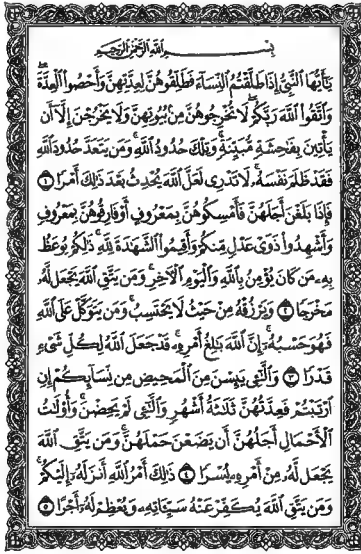 بِسْمِ اللَّهِ الرَّحْمَٰنِ الرَّحِيمِ
يَٰٓأَيُّهَا النَّبِيُّ إِذَا طَلَّقْتُمُ النِّسَآءَ فَطَلِّقُوهُنَّ لِعِدَّتِهِنَّ وَأَحْصُوا الْعِدَّةَ
وَاتَّقُوا اللَّهَ رَبَّكُمْ لَا تُخْرِجُوهُنَّ مِنۢ بُيُوتِهِنَّ وَلَا يَخْرُجْنَ إِلَّآ أَن
يَأْتِينَ بِفَٰحِشَةٍ مُّبَيِّنَةٍ وَتِلْكَ حُدُودُ اللَّهِ وَمَن يَتَعَدَّ حُدُودَ اللَّهِ
فَقَدْ ظَلَمَ نَفْسَهُۥ لَا تَدْرِى لَعَلَّ اللَّهَ يُحْدِثُ بَعْدَ ذَٰلِكَ أَمْرًا ١
فَإِذَا بَلَغْنَ أَجَلَهُنَّ فَأَمْسِكُوهُنَّ بِمَعْرُوفٍ أَوْ فَارِقُوهُنَّ بِمَعْرُوفٍ
وَأَشْهِدُوا ذَوَىْ عَدْلٍ مِّنكُمْ وَأَقِيمُوا الشَّهَٰدَةَ لِلَّهِ ذَٰلِكُمْ يُوعَظُ
بِهِۦ مَن كَانَ يُؤْمِنُ بِاللَّهِ وَالْيَوْمِ الْءَاخِرِ وَمَن يَتَّقِ اللَّهَ يَجْعَل لَّهُۥ
مَخْرَجًا ٢ وَيَرْزُقْهُ مِنْ حَيْثُ لَا يَحْتَسِبُ وَمَن يَتَوَكَّلْ عَلَى اللَّهِ
فَهُوَ حَسْبُهُۥٓ إِنَّ اللَّهَ بَٰلِغُ أَمْرِهِۦ قَدْ جَعَلَ اللَّهُ لِكُلِّ شَىْءٍ
قَدْرًا ٣ وَالَّٰٓـِٔى يَئِسْنَ مِنَ الْمَحِيضِ مِن نِّسَآئِكُمْ إِنِ
ارْتَبْتُمْ فَعِدَّتُهُنَّ ثَلَٰثَةُ أَشْهُرٍ وَالَّٰٓـِٔى لَمْ يَحِضْنَ وَأُولَٰتُ
الْأَحْمَالِ أَجَلُهُنَّ أَن يَضَعْنَ حَمْلَهُنَّ وَمَن يَتَّقِ اللَّهَ
يَجْعَل لَّهُۥ مِنْ أَمْرِهِۦ يُسْرًا ٤ ذَٰلِكَ أَمْرُ اللَّهِ أَنزَلَهُۥٓ إِلَيْكُمْ
وَمَن يَتَّقِ اللَّهَ يُكَفِّرْ عَنْهُ سَيِّـَٔاتِهِۦ وَيُعْظِمْ لَهُۥٓ أَجْرًا ٥